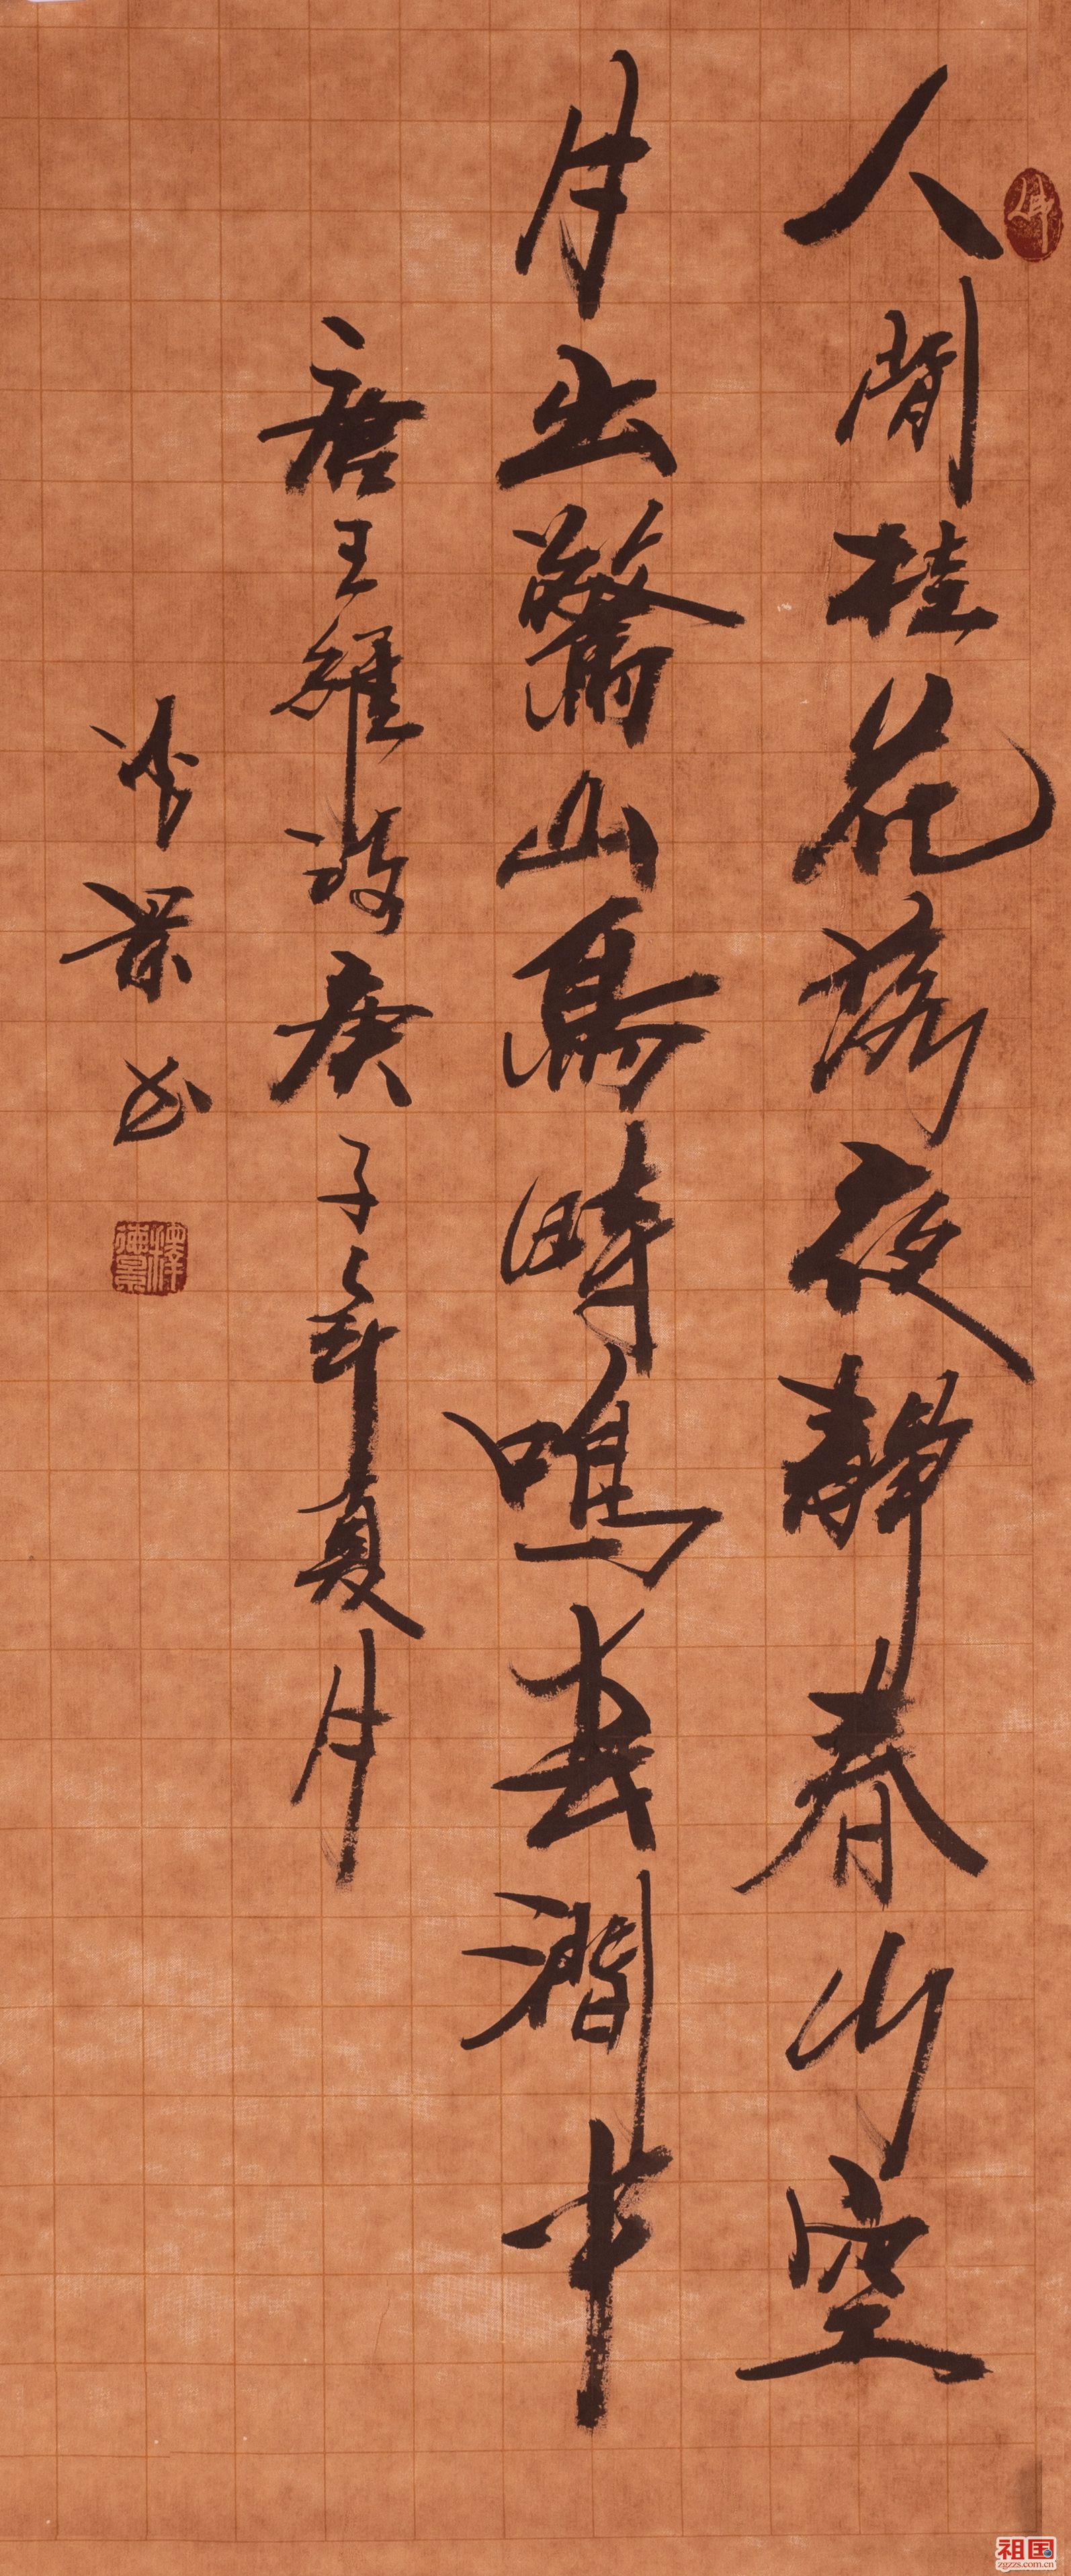 佛
人閒桂花落夜靜春山空
月出驚山鳥時鳴春澗中
唐王維詩庚子年夏月
景书
釋德景
祖国
zgzzs.com.cn